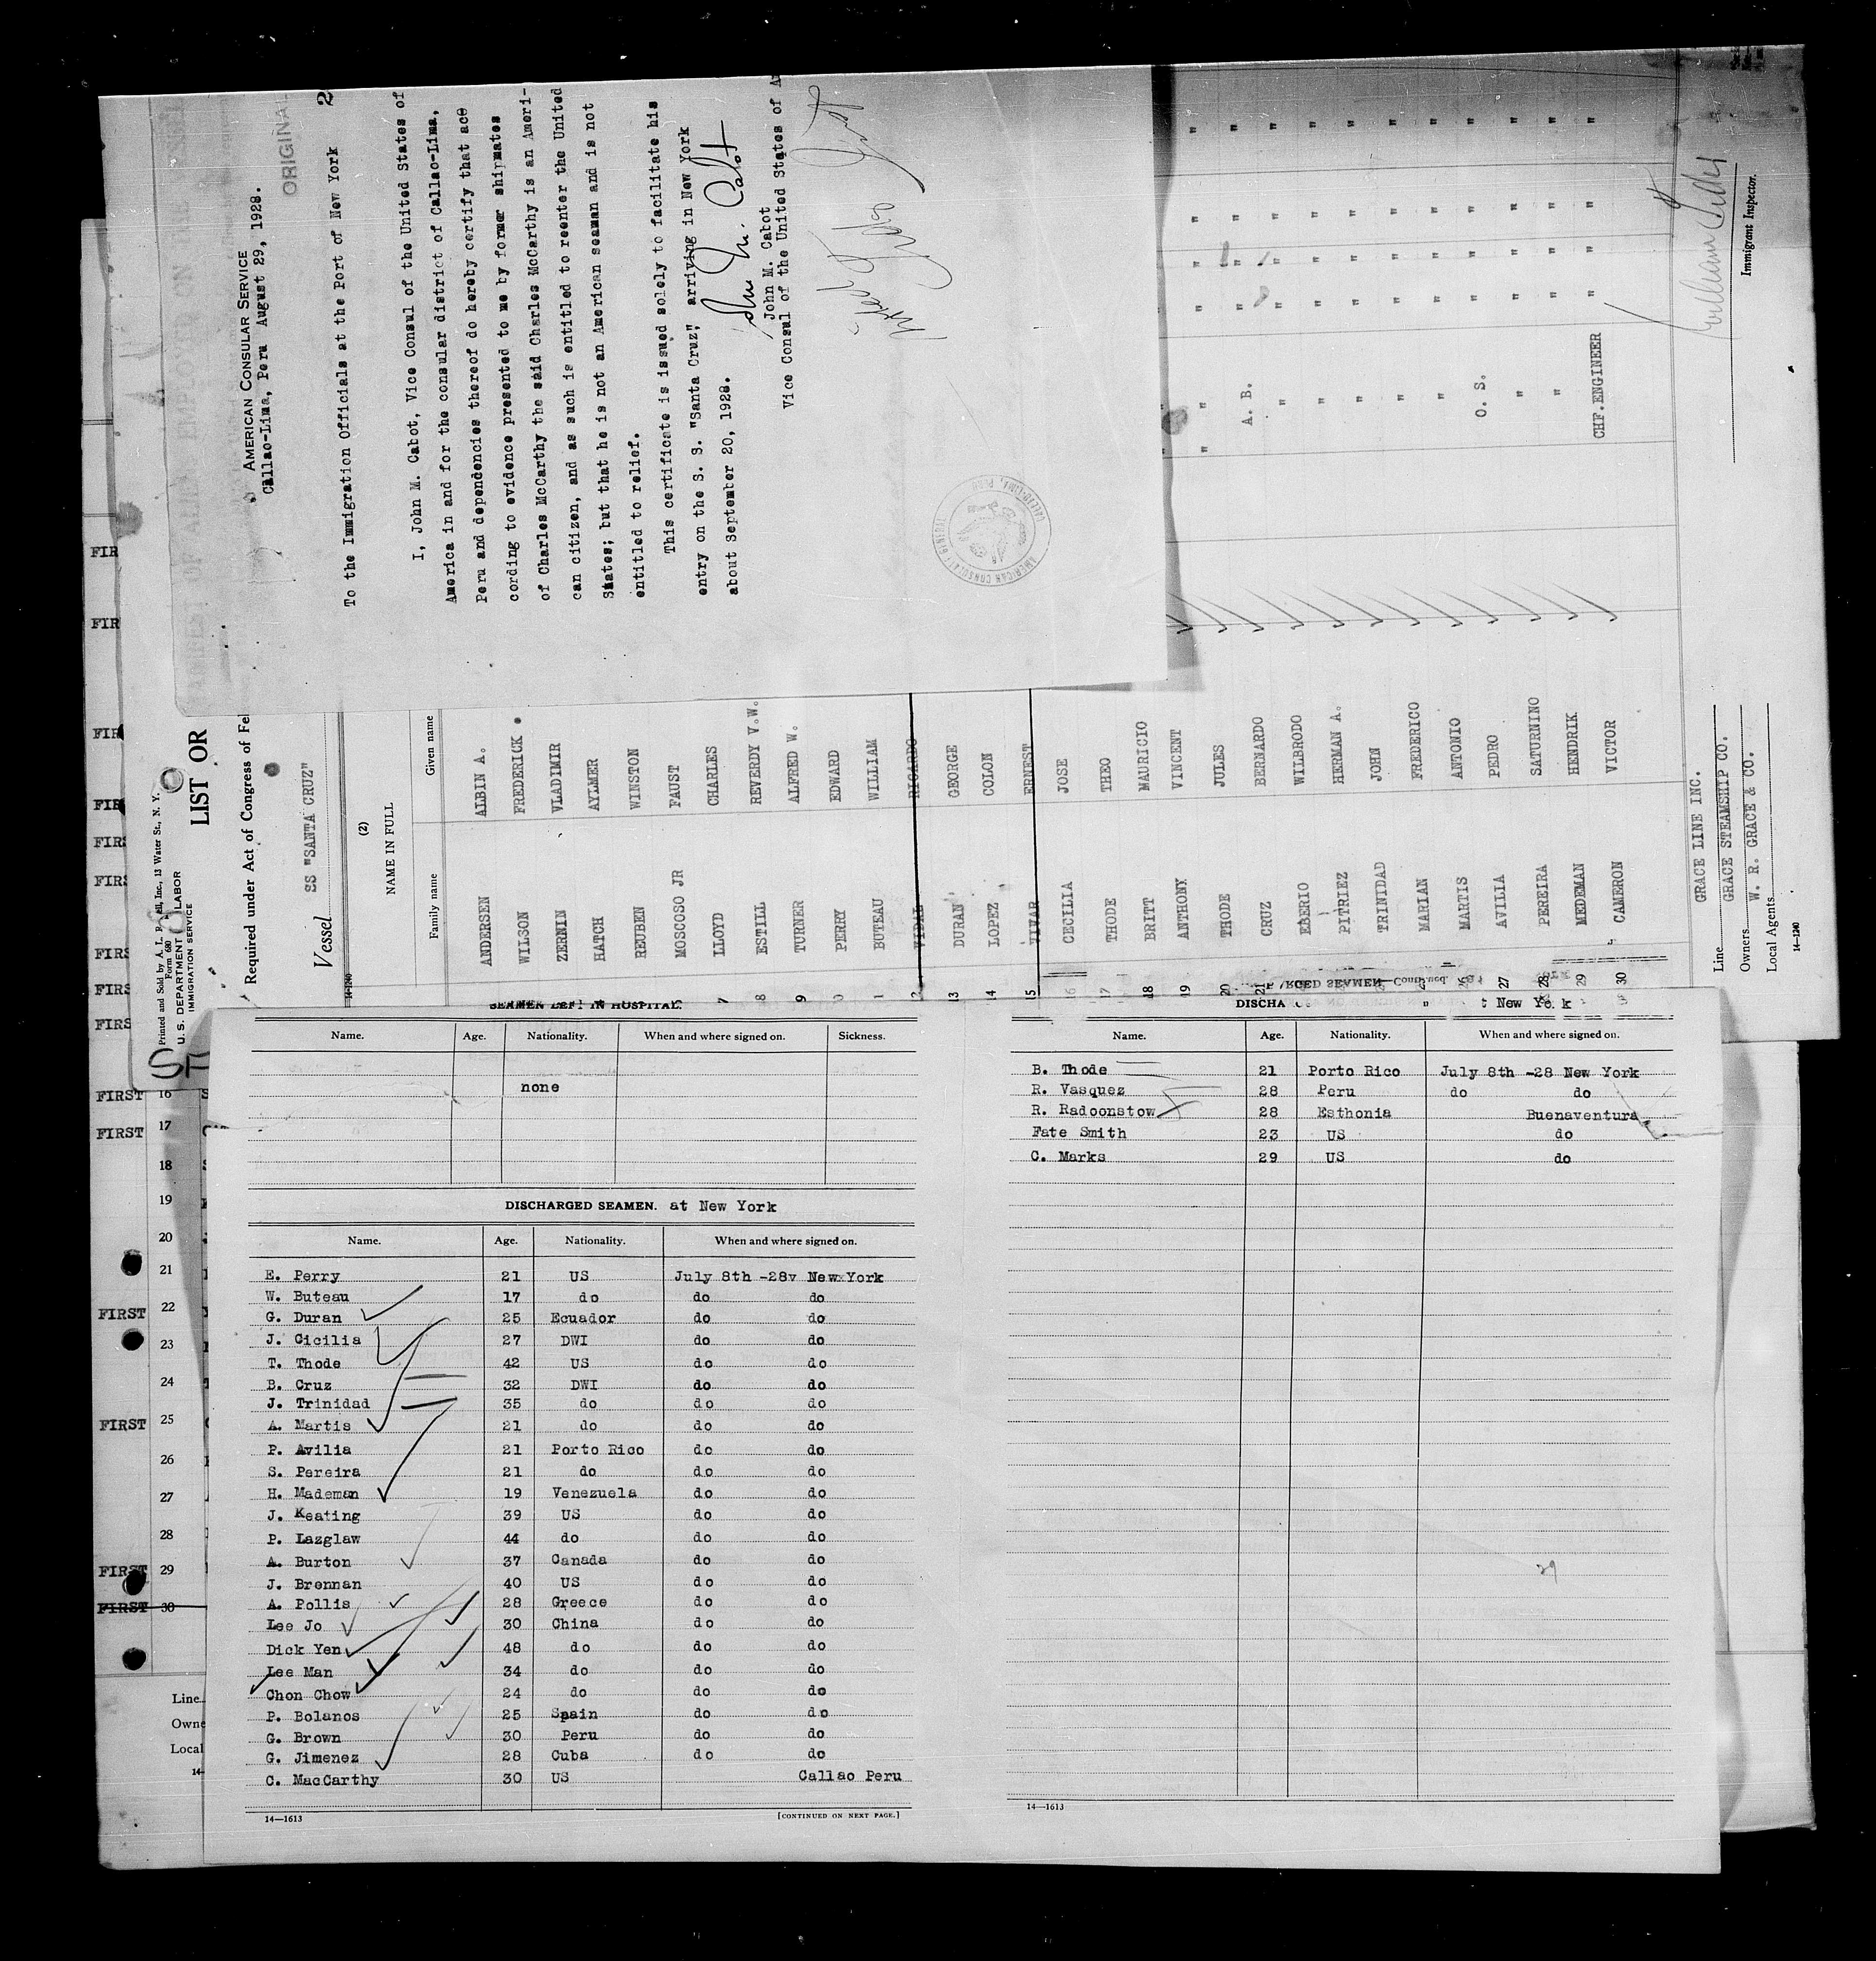 AMERICAN CONSULAR SERVICE
Callao-Lima, Peru August 29, 1928.
ORIGINAL
2
To the Immigration Officials at the Port of New York
I, John M. Cabot, Vice Consul of the United States of
America in and for the consular district of Callao-Lima,
Peru and dependencies thereof do hereby certify that ac
cording to evidence presented to me by former shipmates
of Charles McCarthy the said Charles McCarthy is an Ameri-
can citizen, and as such is entitled to reenter the United
States; but that he is not an American seaman and is not
entitled to relief.
This certificate is issued solely to facilitate his
entry on the S. S. "Santa Cruz", arriving in New York
about September 20, 1928.
John M. Cabot
John M. Cabot
Vice Consul of the United States of A
AMERICAN CONSULATE GENERAL
CALLAO-LIMA, PERU
Printed and Sold by
Inc., 13 Water St., N. Y.
Form 680
U. S. DEPARTMENT LABOR
IMMIGRATION SERVICE
LIST OR
Required under Act of Congress of Fe
Vessel SS "SANTA CRUZ"
14-1240
(2)
NAME IN FULL
Family name Given name
ANDERSEN ALBIN A.
WILSON FREDERICK.
ZERNIN VLADIMIR
HATCH AYLMER
REUBEN WINSTON
MOSCOSO JR FAUST
7 LLOYD CHARLES
8 ESTILL REVERDY V.W.
9 TURNER ALFRED W.
0 PERRY EDWARD
1 BUTEAU WILLIAM
2 VIDAL RICARDO
13 DURAN GEORGE
14 LOPEZ COLON
15 VIMAR ERNEST
16 CECILIA JOSE
17 THODE THEO
18 BRITT MAURICIO
19 ANTHONY VINCENT "
20 THODE JULES A. B. " " " "
21 CRUZ BERNARDO " " " " "
EBERIO WILBRODO " " " " "
PITRIEZ HERMAN A. " " " " "
TRINIDAD JOHN " " " " "
MARIAN FREDERICO " " " " "
26 MARTIS ANTONIO O. S. " " " "
27 AVILIA PEDRO " " " " "
28 PEREIRA SATURNINO " " " " "
29 MEDEMAN HENDRIK
30 CAMERON VICTOR CHF.ENGINEER " " " "
Immigrant Inspector.
GRACE LINE INC.
Line GRACE STEAMSHIP CO.
Owners W. R. GRACE & CO.
Local Agents
14-1240
SEAMEN LEFT IN HOSPITAL.
Name. Age. Nationality. When and where signed on. Sickness.
none
DISCHARGED SEAMEN. at New York
Name. Age. Nationality. When and where signed on.
E. Perry 21 US July 8th -28v NewxYork
W. Buteau 17 do do do
G. Duran 25 Ecuador do do
J. Cicilia 27 DWI do do
T. Thode 42 US do do
B. Cruz 32 DWI do do
J. Trinidad 35 do do do
A. Martis 21 do do do
P. Avilia 21 Porto Rico do do
S. Pereira 21 do do do
H. Mademan 19 Venezuela do do
J. Keating 39 US do do
P. Lazglaw 44 do do do
A. Burton 37 Canada do do
J. Brennan 40 US do do
A. Pollis 28 Greece do do
Lee Jo 30 China do do
Dick Yen 48 do do do
Lee Man 34 do do do
Chon Chow 24 do do do
P. Bolanos 25 Spain do do
G. Brown 30 Peru do do
G. Jimenez 28 Cuba do do
C. MacCarthy 30 US Callao Peru
14—1613 [CONTINUED ON NEXT PAGE.]
SEAMEN—Continued.
DISCHA t New York
Name. Age. Nationality. When and where signed on.
B. Thode 21 Porto Rico July 8th -28 New York
R. Vasquez 28 Peru do do
R. Radoonstow 28 Esthonia Buenaventura
Fate Smith 23 US do
C. Marks 29 US do
29
14—1613
FIR
FIR
FIR
FIR
FIRS
FIRS
FIRS
FIRS
FIRS
FIRST 16
FIRST 17
18
19
20
21
FIRST 22
23
24
FIRST 25
26
27
28
FIRST 29
FIRST 30
Line
Owne
Local
14-